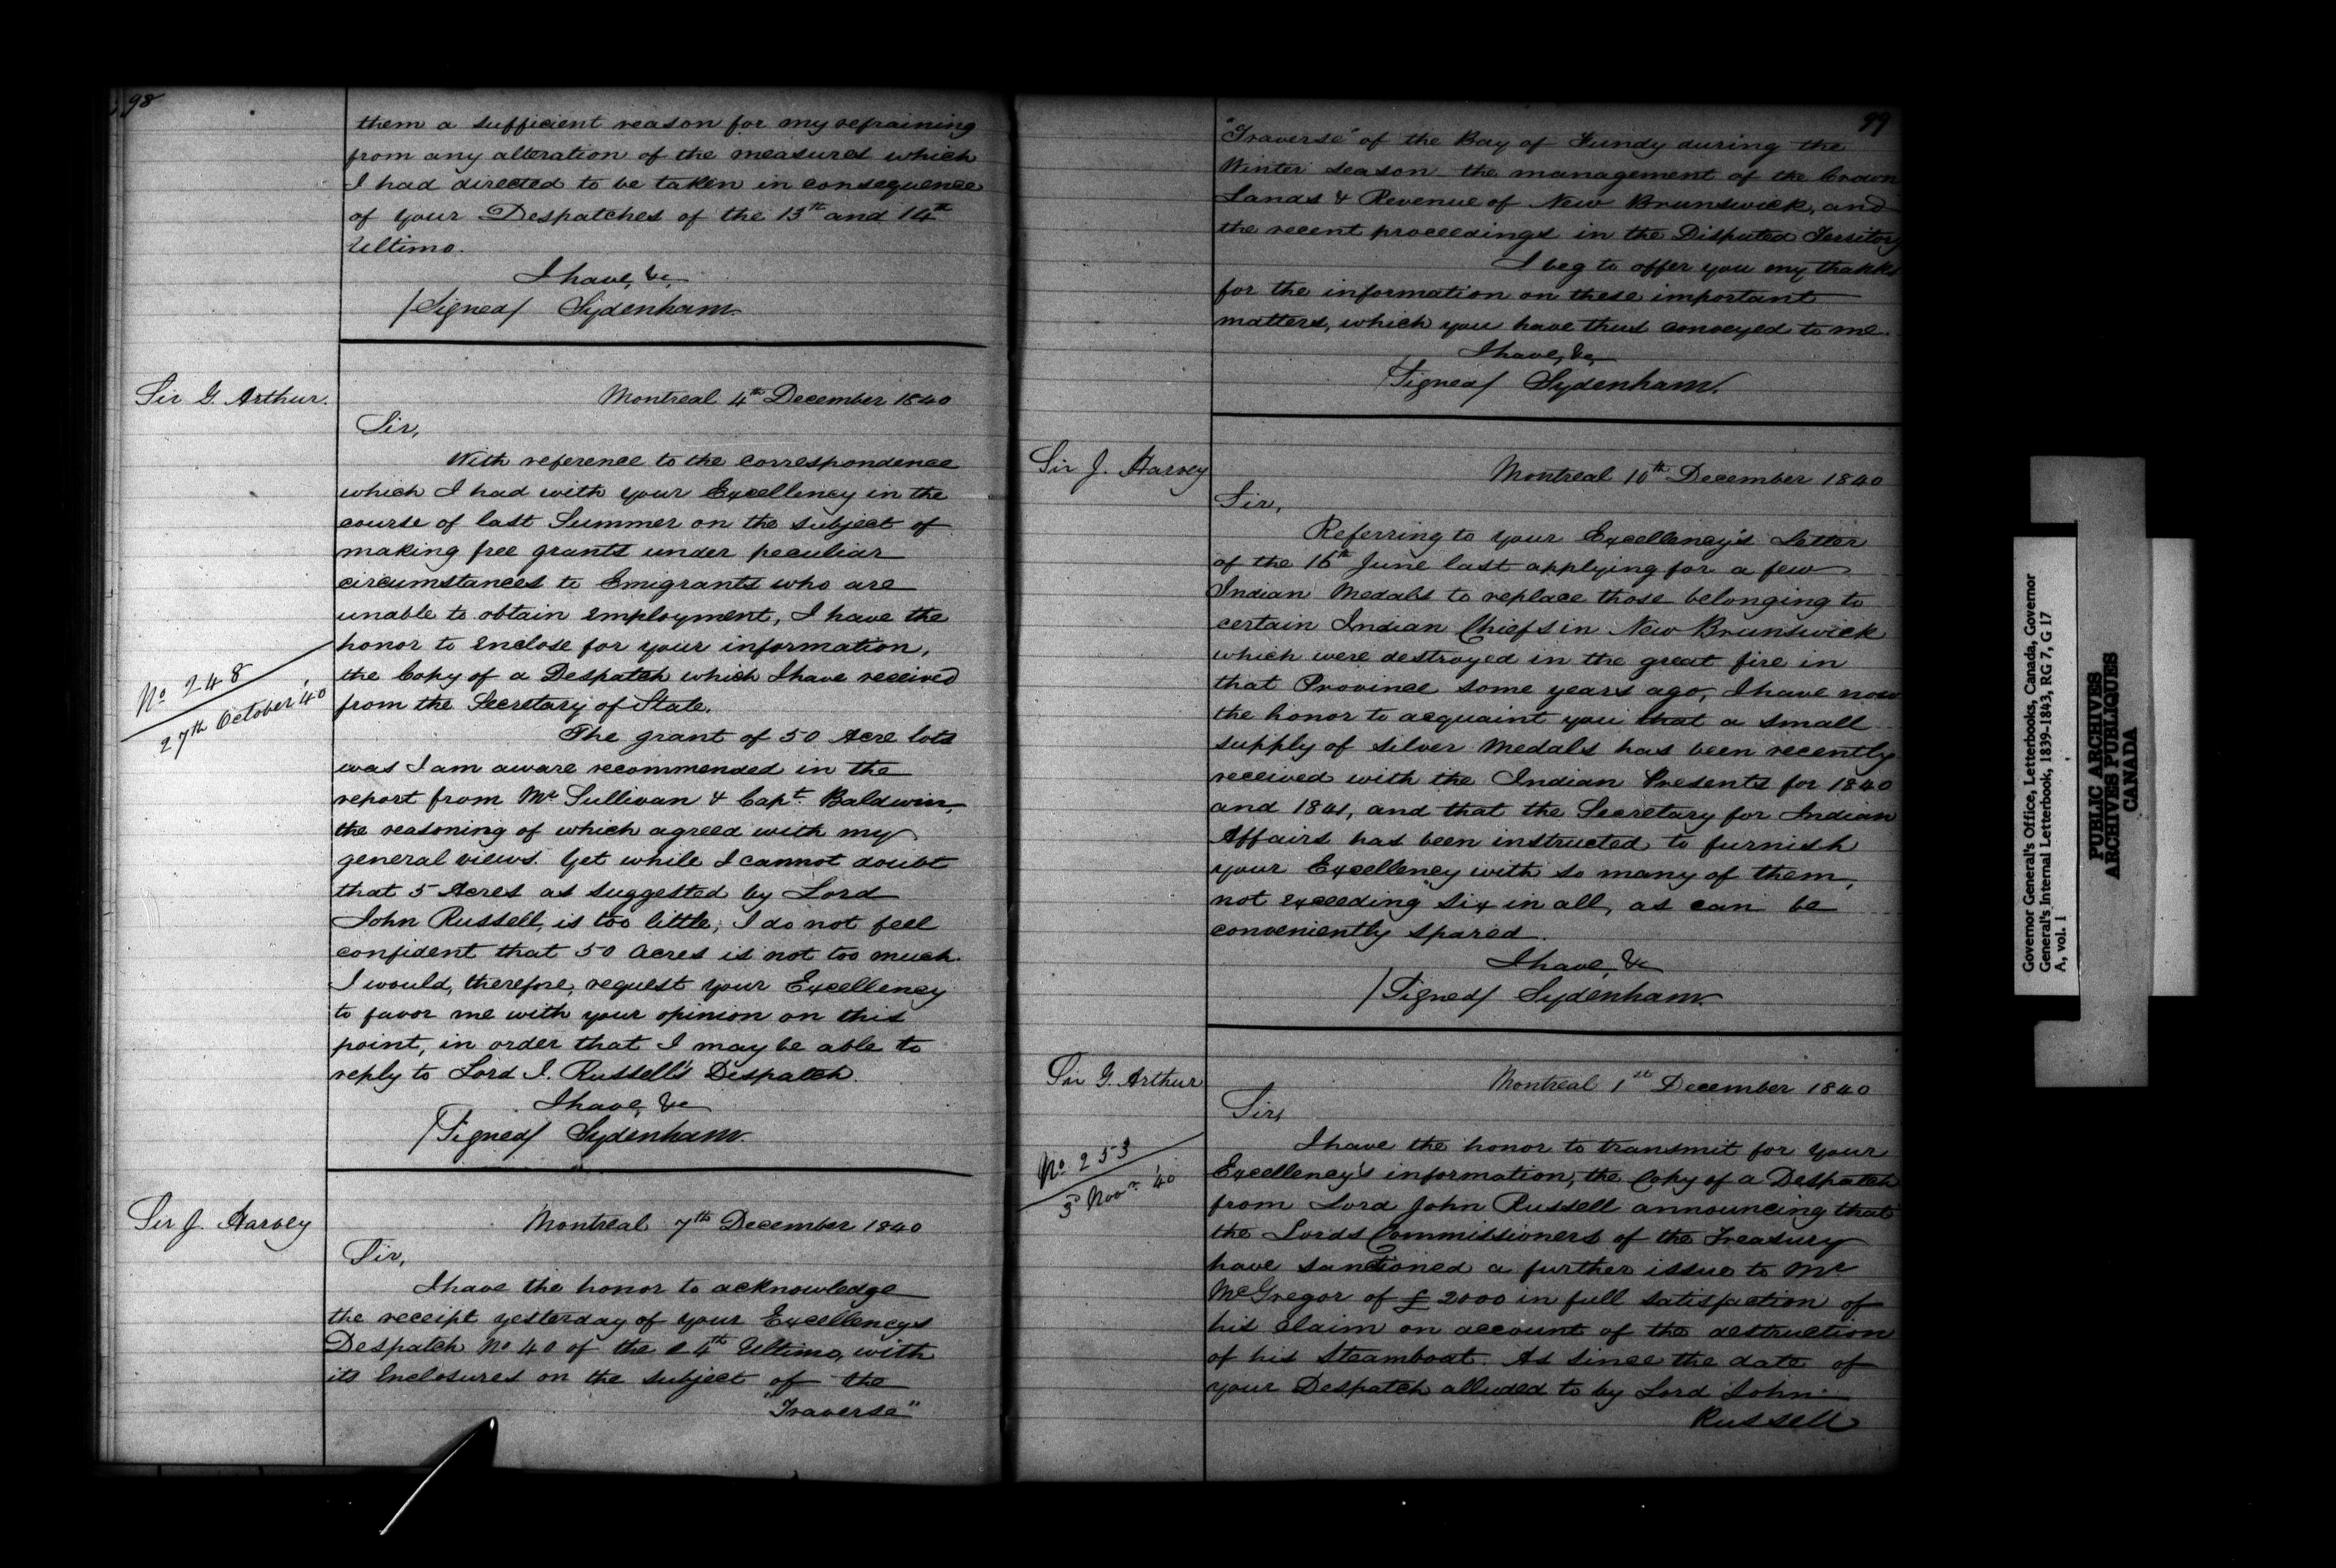 98
them a sufficient reason for my refraining
from any alteration of the measures which
I had directed to be taken in consequence
of your Despatches of the 13th and 14th
Ultimo.
I have, &c,
/Signed/ Sydenham.
Sir G. Arthur.
Montreal 4th December 1840
Sir,
With reference to the correspondence
which I had with your Excellency in the
course of last Summer on the subject of
making free grants under peculiar
circumstances to Emigrants who are
unable to obtain employment, I have the
honor to enclose for your information,
the Copy of a Despatch which I have received
from the Secretary of State.
No 248
27th October '40
The grant of 50 Acre lots
was I am aware recommended in the
report from Mr Sullivan & Capt. Baldwin,
the reasoning of which agreed with my
general views. Yet while I cannot doubt
that 5 Acres as suggested by Lord
John Russell, is too little, I do not feel
confident that 50 Acres is not too much.
I would, therefore, request your Excellency
to favor me with your opinion on this
point, in order that I may be able to
reply to Lord J. Russell's Despatch.
I have, &c
/Signed/ Sydenham.
Sir J. Harvey
Montreal 7th December 1840
Sir,
I have the honor to acknowledge
the receipt yesterday of your Excellencys
Despatch No 40 of the 24th Ultimo, with
its Enclosures on the subject of the
"Traverse"
99
"Traverse" of the Bay of Fundy during the
Winter season the management of the Crown
Lands & Revenue of New Brunswick, and
the recent proceedings in the Disputed Territory
I beg to offer you my thanks
for the information on these important
matters, which you have thus conveyed to me.
I have, &c,
/Signed/ Sydenham.
Sir J. Harvey
Montreal 10th December 1840
Sir,
Referring to your Excellency's Letter
of the 16th June last applying for a few
Indian Medals to replace those belonging to
certain Indian Chiefs in New Brunswick
which were destroyed in the great fire in
that Province some years ago, I have now
the honor to acquaint you that a small
supply of silver Medals has been recently
received with the Indian Presents for 1840
and 1841, and that the Secretary for Indian
Affairs has been instructed to furnish
your Excellency with so many of them,
not exceeding six in all, as can be
conveniently spared.
I have, &c
/Signed/ Sydenham.
Sir G. Arthur
Montreal 1st December 1840
Sir,
I have the honor to transmit for your
Excellency's information, the Copy of a Despatch
No 253
3d Novr. '40
from Lord John Russell announcing that
the Lords Commissioners of the Treasury
have sanctioned a further issue to Mr
McGregor of £2000 in full satisfaction of
his claim on account of the destruction
of his Steamboat. As since the date of
your Despatch alluded to by Lord John
Russell
Governor General's Office, Letterbooks, Canada, Governor
General's Internal Letterbook, 1839-1843, RG 7, G 17
A, vol. 1
PUBLIC ARCHIVES
ARCHIVES PUBLIQUES
CANADA